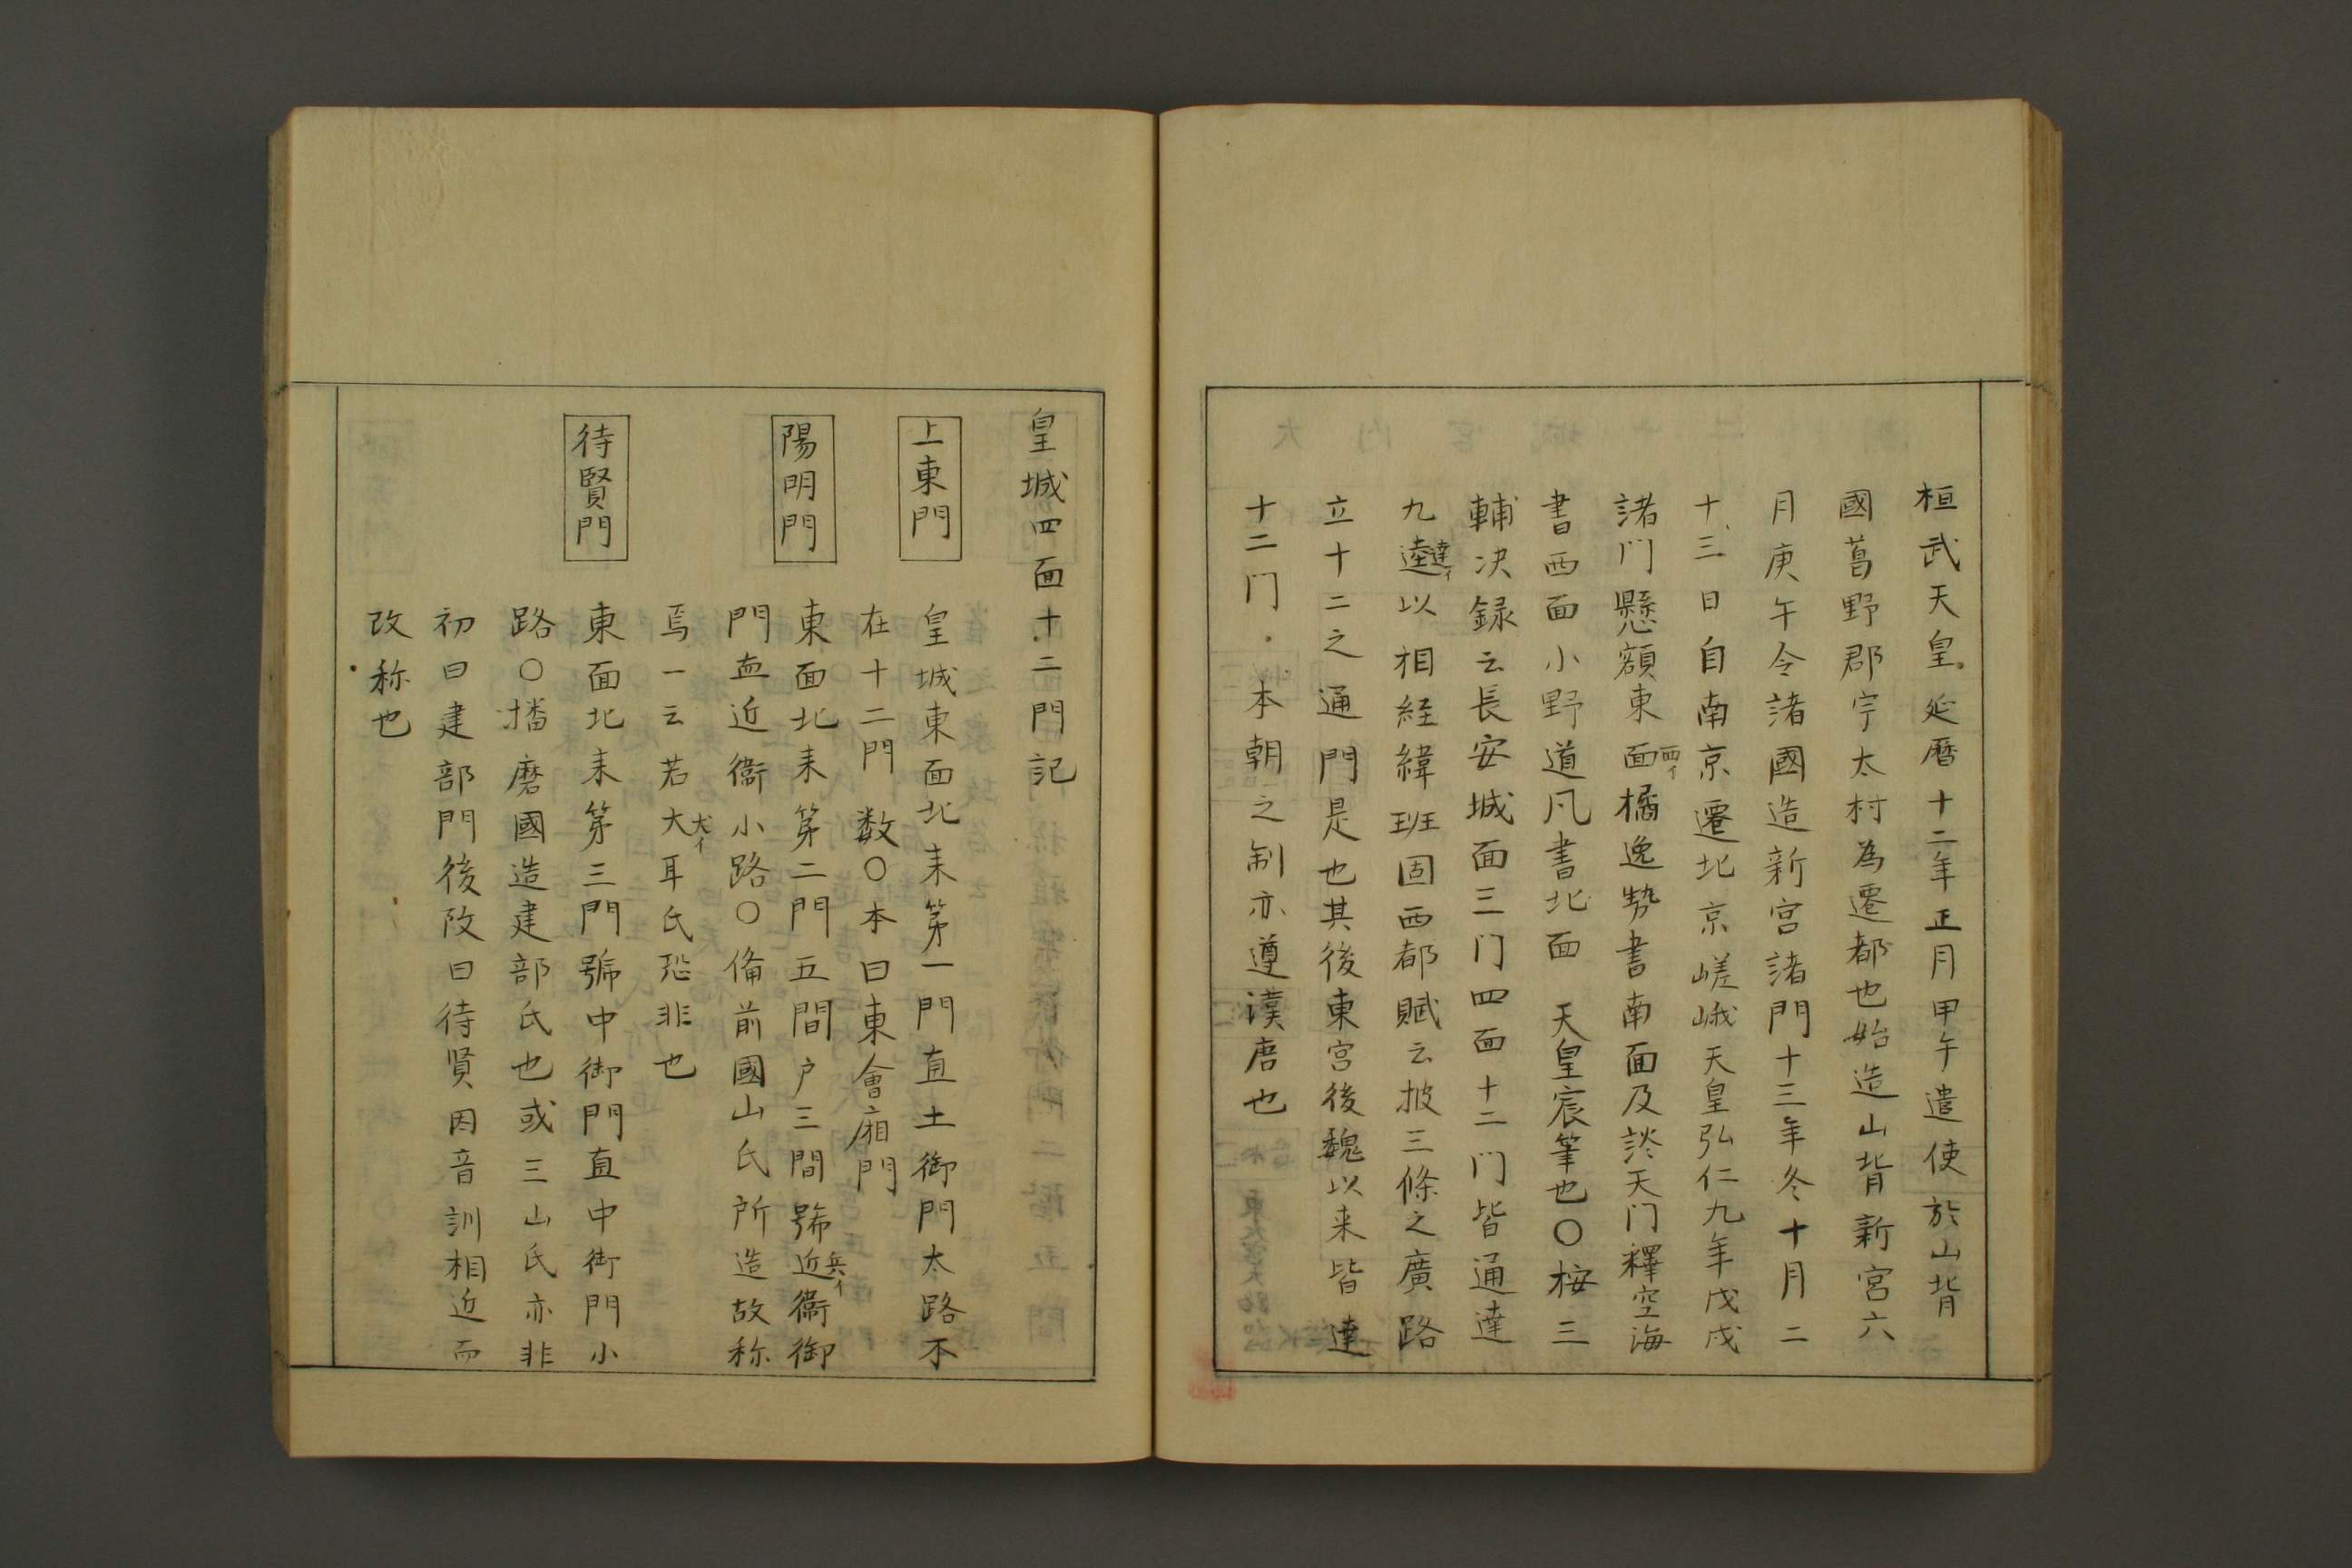 桓武天皇延暦十二年正月甲午遣使於山背
國葛野郡宇太村為遷都也始造山背新宮六
月庚午令諸國造新宮諸門十三年冬十月二
十三日自南京遷北京嵯峨天皇弘仁九年戊戌
諸门懸額東面西イ橘逸勢書南面及談天门釋空海
書西面小野道凡書北面　天皇宸筆也〇桉三
輔决録云長安城面三门四面十二门皆通達
九逵達イ以相経緯班固西都賦云披三條之廣路
立十二之通門是也其後東宮後魏以来皆達
十二门本朝之制亦遵漢唐也
皇城四面十二門記
上東門
皇城東面北耒第一門直土御門太路不
在十二門　数〇本曰東會廂門
陽明門
東面北耒第二門五間戸三間號近兵イ衞御
門直近衞小路〇備前國山氏所造故称
焉一云若大犬イ耳氏恐非也
待賢門
東面北耒第三門號中御門直中街門小
路〇播磨國造建部氏也或三山氏亦非
初曰建部門後改曰待賢因音訓相近而
改称也